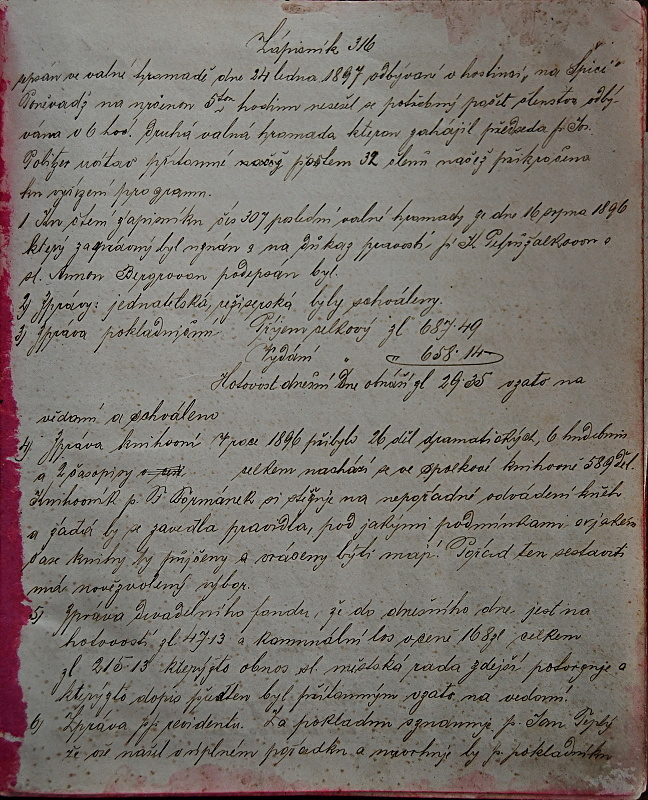 Zápisník 316
sepsán ve valné hromadě dne 24 ledna 1897 odbývané v hostinci „na Špici"
Poněvadž na určenou 5tou hodinu nesešel se potřebný počet členstva odbý-
vána v 6 hod. Druhá valná hromada kterou zahájil předseda p. Jos.
Politzer uvítav přítomné počtem 32 členů načež přikročeno
ku vyřízení programu.
1 Ku čtení zápisníku čís 307 poslední valné hromady ze dne 16 srpna 1896
který správný byl uznán a na důkaz pravosti p. K. a
sl. Annou Bergrovou podepsán byl.
2) Zprávy: jednatelská, režiserská byly schváleny.
3) Zpráva pokladničná Příjem celkový zl 687·49
Vydání " " 658·14
Hotovost dnešní dne obnáší zl 29·35 vzato na
vědomí a schváleno
4) Zpráva knihovní V roce 1896 přibylo 26 děl dramatických, 6 hudebnin
a 2 časopisy celkem nachází se ve spolkové knihovně 589 děl.
Knihovník p. Fr Formánek si stěžuje na nepořádné odvádění knih
a žádá by se zavedla pravidla, pod jakými podmínkami a v jakém
čase knihy by půjčeny a vráceny býti mají. Pořad ten sestaviti
má novězvolený výbor.
5) Zpráva Divadelního fondu, že do dnešního dne jest na
hotovosti zl 47·13 a komunální los v ceně 168 zl celkem
zl 215·13 kterýžto obnos sl. městská rada zdejší potvrzuje a
kterýžto dopis přečten byl přítomným vzato na vědomí.
6) Zpráva pp revidentů. Za pokladnu oznamuje p. Jan Teplý
že vše našel v úplném pořádku a navrhuje by p. pokladníku